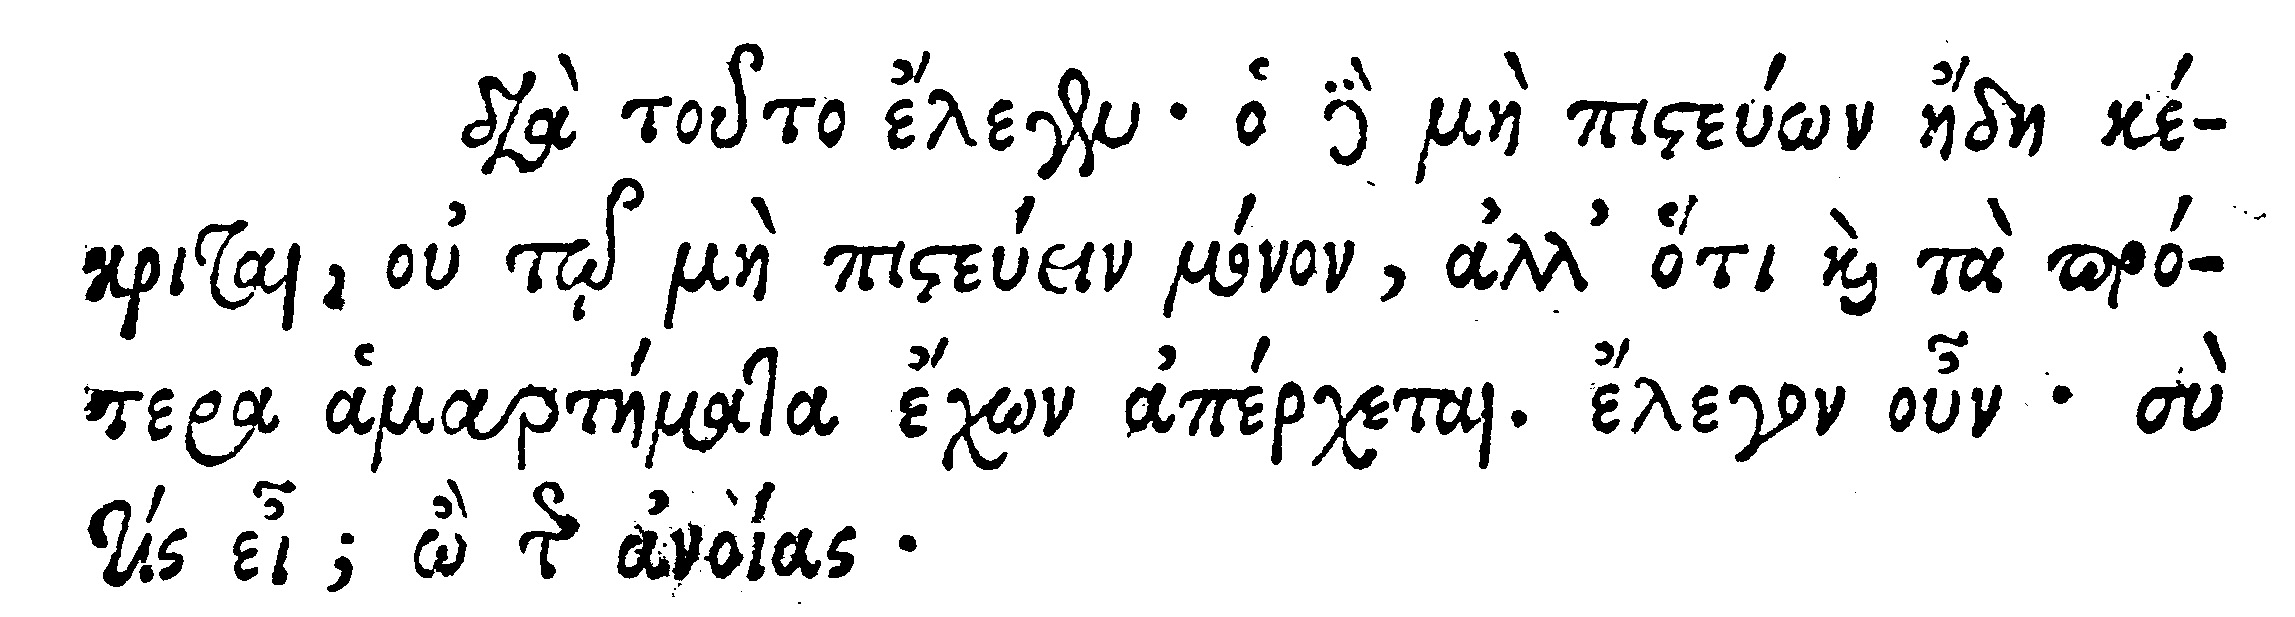 διὰ τοῦτο ἔλεγεν· ὁ δὲ μὴ πιςεύων ἤδη κέ-
κριται, οὐ τῷ μὴ πιςεύειν μόνον, ἀλλ’ ὅτι καὶ τὰ πρό-
τερα ἁμαρτήματα ἔχων ἀπέρχεται. ἔλεγον οὖν· σὺ
τίς εἶ; ὢ τῆς ἀνοίας·